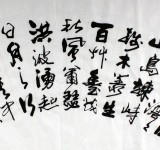 山島竦
峙樹木叢生
百艸豐茂
秋風蕭瑟
洪波湧起
日月之行